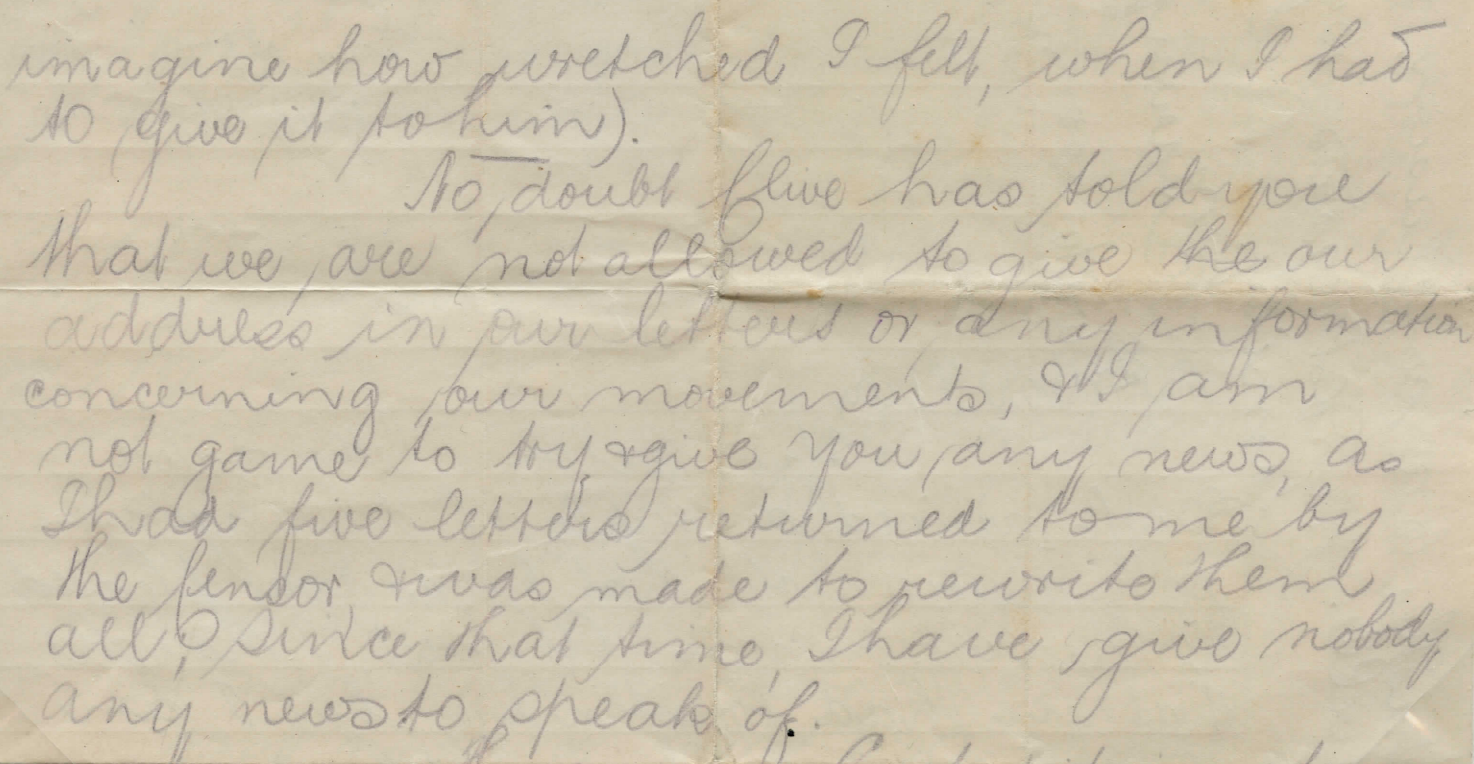 imagine how wretched I felt, when I had
to give it to him).
No doubt Clive has told you
that we are not allowed to give the our
address in our letters or any information
concerning our movements, & I am
not game to try & give you any news, as
I had five letters returned to me by
the Censor, & was made to rewrite them
all, Since that time, I have give nobody
any news to speak of.